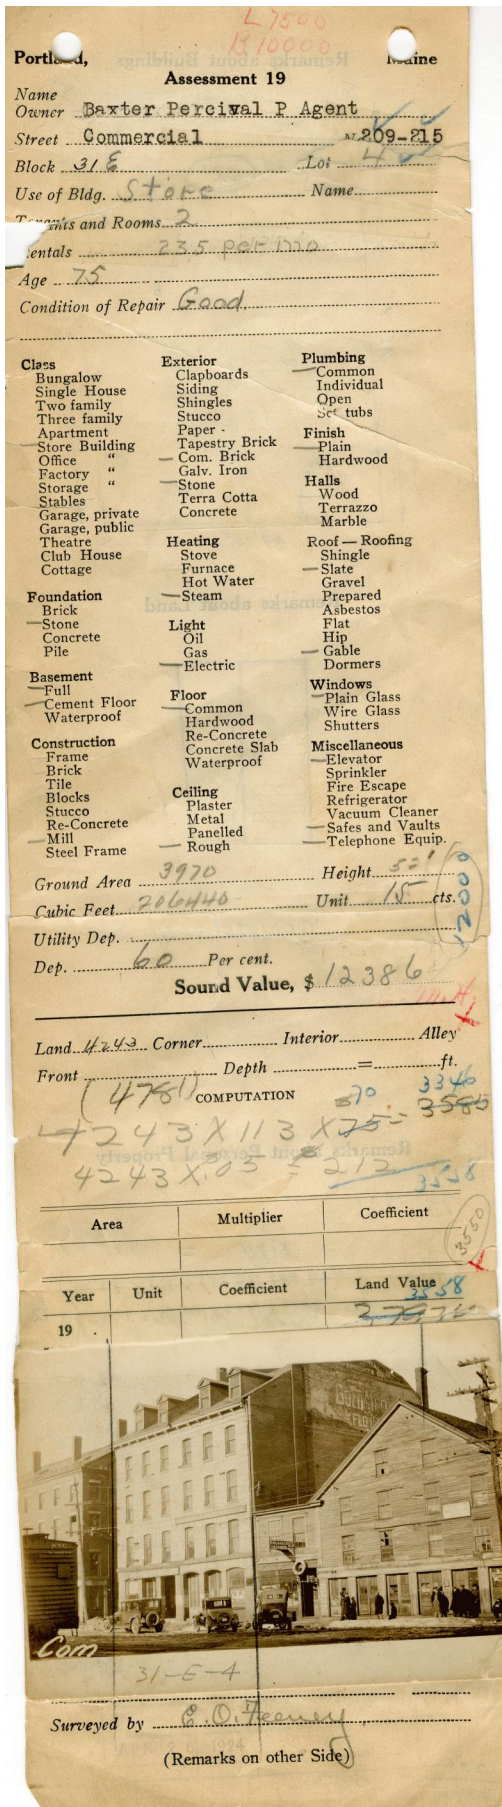 L 7500
B 10000
Portland, Maine
Assessment 19
Name
Owner Baxter Percival P Agent
Street Commercial No 209-215
Block 31 E Lot 4
Use of Bldg. Store Name
Tenants and Rooms 2
Rentals 235 per mo
Age 75
Condition of Repair Good.
Class
Bungalow
Single House
Two family
Three family
Apartment
Store Building
Office "
Factory "
Storage "
Stables
Garage, private
Garage, public
Theatre
Club House
Cottage
Foundation
Brick
Stone
Concrete
Pile
Basement
Full
Cement Floor
Waterproof
Construction
Frame
Brick
Tile
Blocks
Stucco
Re-Concrete
Mill
Steel Frame
Exterior
Clapboards
Siding
Shingles
Stucco
Paper -
Tapestry Brick
Com. Brick
Galv. Iron
Stone
Terra Cotta
Concrete
Heating
Stove
Furnace
Hot Water
Steam
Light
Oil
Gas
Electric
Floor
Common
Hardwood
Re-Concrete
Concrete Slab
Waterproof
Ceiling
Plaster
Metal
Panelled
Rough
Plumbing
Common
Individual
Open
Set tubs
Finish
Plain
Hardwood
Halls
Wood
Terrazzo
Marble
Roof — Roofing
Shingle
Slate
Gravel
Prepared
Asbestos
Flat
Hip
Gable
Dormers
Windows
Plain Glass
Wire Glass
Shutters
Miscellaneous
Elevator
Sprinkler
Fire Escape
Refrigerator
Vacuum Cleaner
Safes and Vaults
Telephone Equip.
Ground Area 3970 Height 52'
Cubic Feet 206440 Unit 15 cts.
12000
Utility Dep.
Dep. 60 Per cent.
Sound Value, $ 12386
Land 4243 Corner Interior Alley
Front Depth = ft.
(4781) COMPUTATION 70 3346
4243 X 113 X 75 = 3585
4243 X .05 = 212 3558
Area Multiplier Coefficient
3550
Year Unit Coefficient Land Value
3558
19
GOLD MEDAL
FLOUR
Com
31-E-4
Surveyed by E. O. Feeney
(Remarks on other Side)